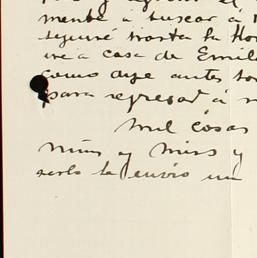 mente a buscar á
seguiré hasta la Ho
iré a casa de Emil
como dije antes
para regresar á
Mil cosas
y Miss y
la envio un